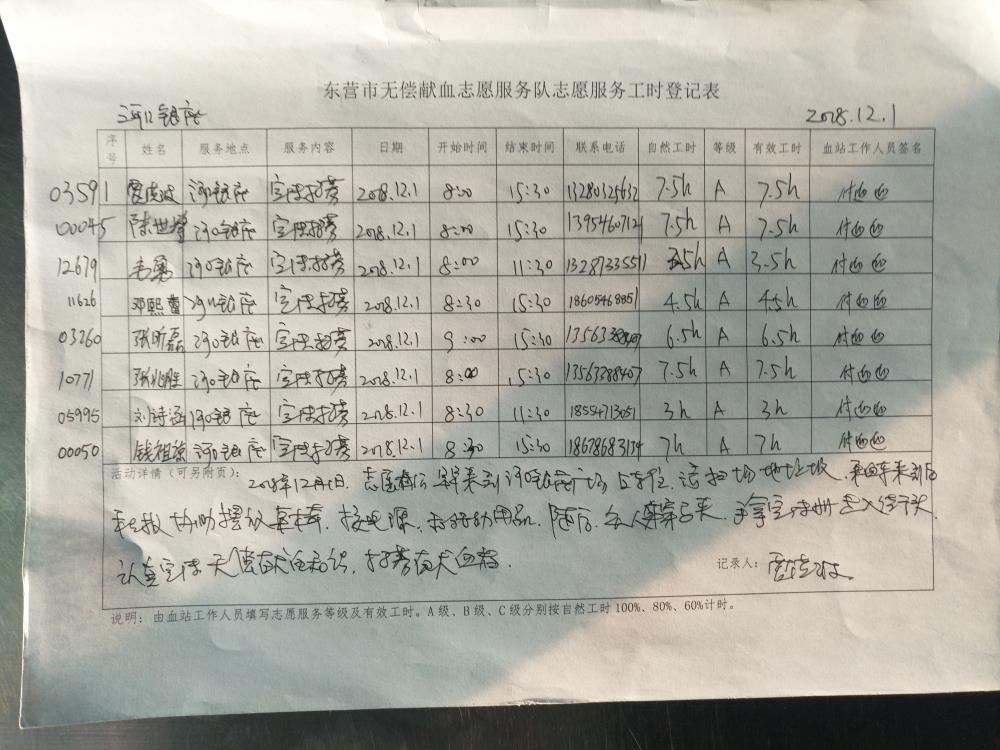 东营市无偿献血志愿服务队志愿服务工时登记表
河口银座 2018.12.1
序号 姓名 服务地点 服务内容 日期 开始时间 结束时间 联系电话 自然工时 等级 有效工时 血站工作人员签名
03591 河口银座 宣传招募 2018.12.1 8:00 15:30 13280125632 7.5h A 7.5h
00045 陈世峰 河口银座 宣传招募 2018.12.1 8:00 15:30 7.5h A 7.5h
12679 毛勇 河口银座 宣传招募 2018.12.1 8:00 11:30 13287335511 3.5h A 3.5h
11626 邓熙蕾 河口银座 宣传招募 2018.12.1 8:30 15:30 18605468851 4.5h A 4.5h
03260 张昕磊 河口银座 宣传招募 2018.12.1 9:00 15:30 6.5h A 6.5h
10771 张兆胜 河口银座 宣传招募 2018.12.1 8:00 15:30 13563288407 7.5h A 7.5h
05995 刘诗涵 河口银座 宣传招募 2018.12.1 8:30 11:30 18554713051 3h A 3h
00050 钱祖英 河口银座 宣传招募 2018.12.1 8:30 15:30 18678683134 7h A 7h
活动详情(可另附页): 2018年12月1日. 志愿者们早早来到河口银座广场 清扫场地垃圾. 采血车来到后
协助摆放桌椅, 接电源. 手拿宣传册走入街头
认真宣传无偿献血知识, 招募献血者.
记录人:
说明: 由血站工作人员填写志愿服务等级及有效工时。A级、B级、C级分别按自然工时100%、80%、60%计时。